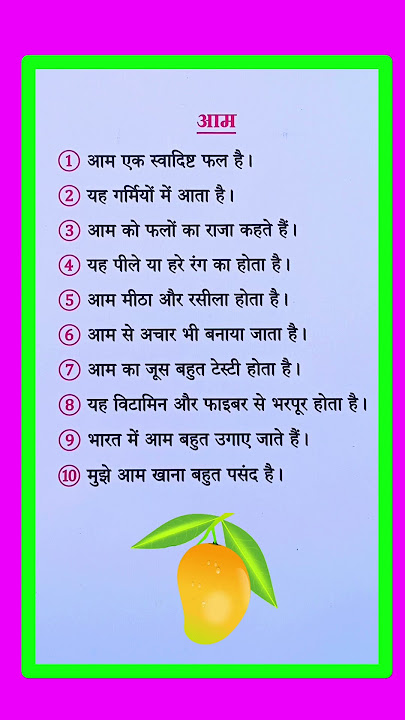 आम
① आम एक स्वादिष्ट फल है।
② यह गर्मियों में आता है।
③ आम को फलों का राजा कहते हैं।
④ यह पीले या हरे रंग का होता है।
⑤ आम मीठा और रसीला होता है।
⑥ आम से अचार भी बनाया जाता है।
⑦ आम का जूस बहुत टेस्टी होता है।
⑧ यह विटामिन और फाइबर से भरपूर होता है।
⑨ भारत में आम बहुत उगाए जाते हैं।
⑩ मुझे आम खाना बहुत पसंद है।